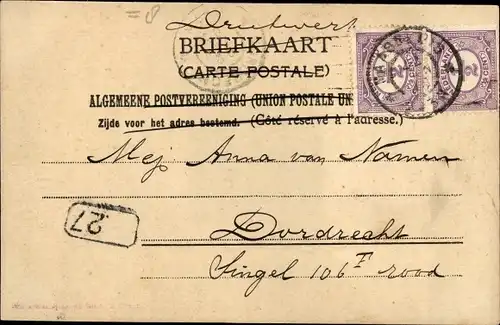 Drukwerk
BRIEFKAART
(CARTE POSTALE)
ALGEMEENE POSTVEREENIGING (UNION POSTALE UN
Zijde voor het adres bestemd. (Côté réservé à l'adresse.)
Mej Anna van Namen
27
Dordrecht
Singel 106 F rood